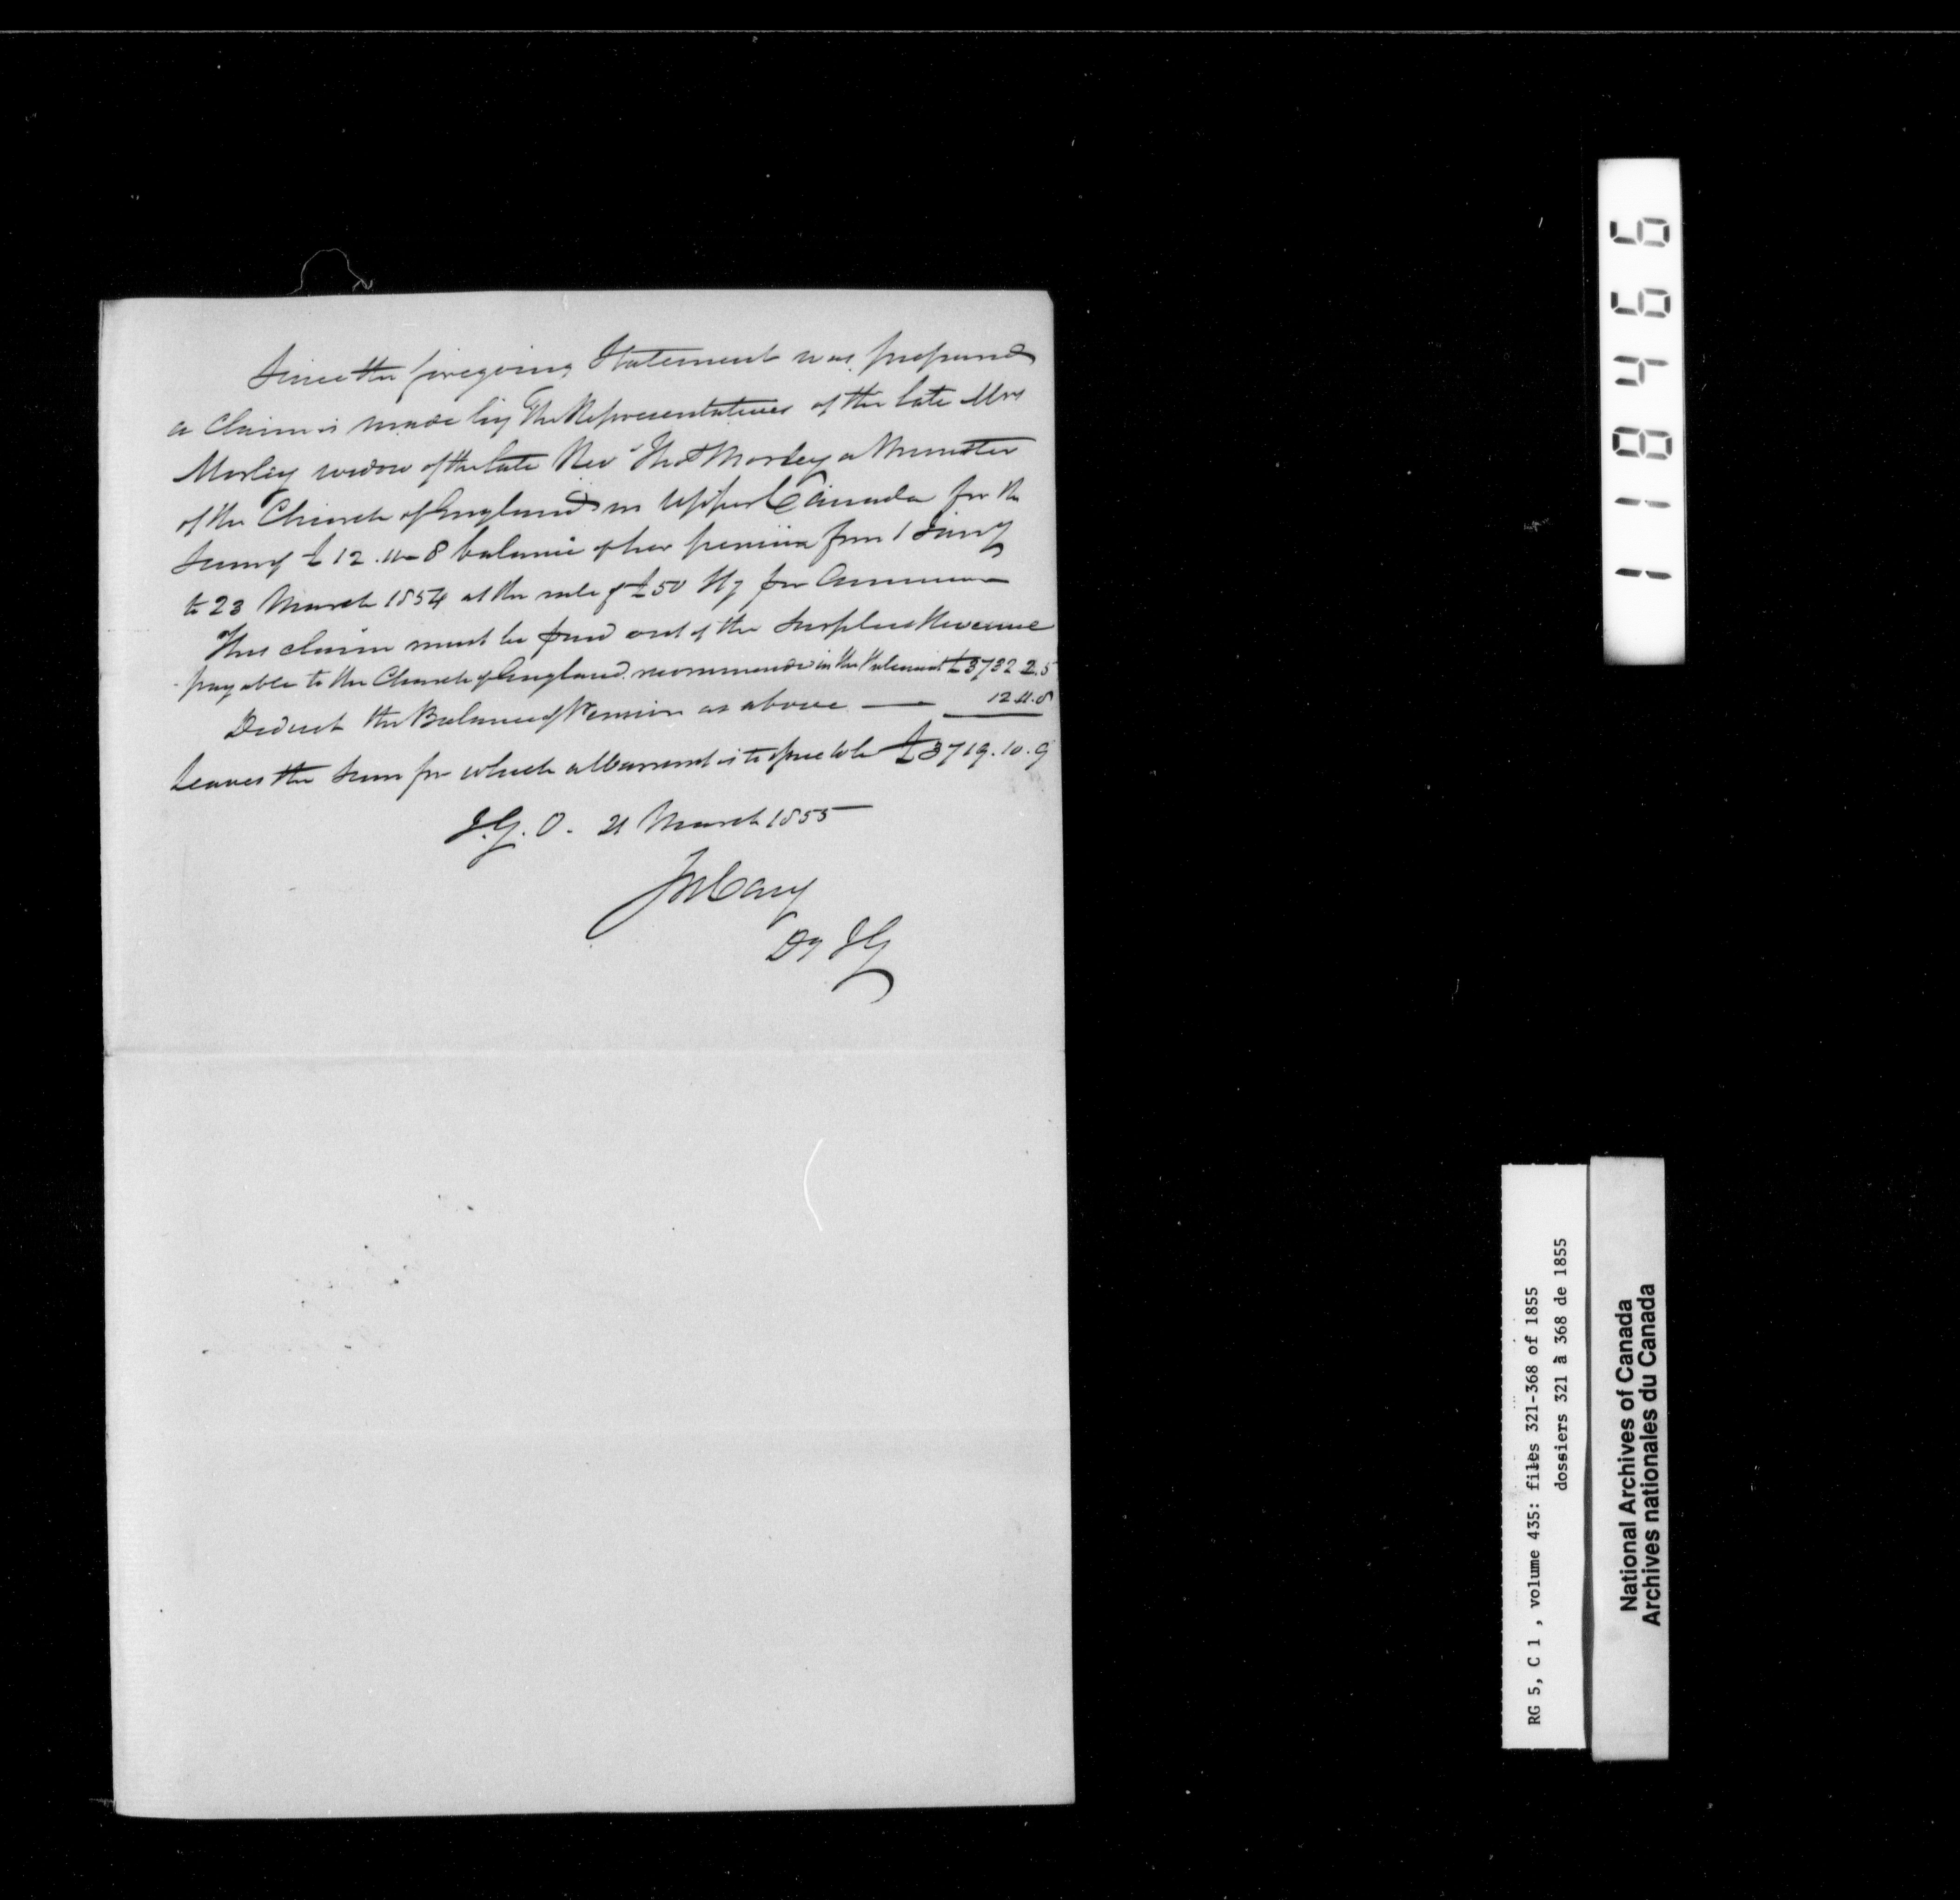 Since the foregoing Statement was prepared
a Claim is made by The Representatives of the late Mrs
Morley widow of the late Rev Thos Morley a Minister
of the Church of England in Upper Canada for the
sum of £12.11.8 balance of her pension from 1 Jany
to 23 March 1854 at the rate of £50 Stg per Annum
This claim must be paid out of the Surplus Revenue
payable to the Church of England recommended in the Statement £3732 2.5
Deduct the Balance of Pension as above — 12 11.8
Leaves the Sum for which a Warrant is to £3719.10.9
I.G.O. 21 March 1855
Jos Cary
Dy IG
118466
RG 5, C 1 , volume 435: files 321-368 of 1855
dossiers 321 à 368 de 1855
National Archives of Canada
Archives nationales du Canada